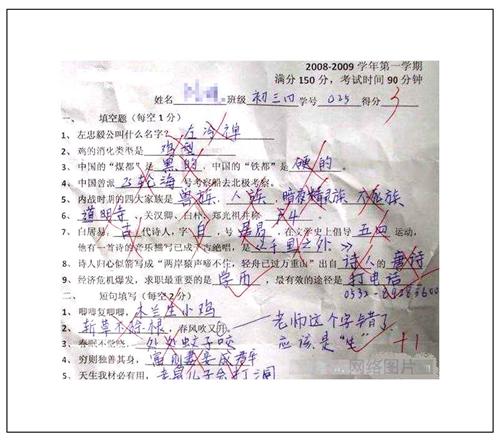 2008-2009 学年第一学期
满分 150 分，考试时间 90 分钟
姓名 班级 初三四 学号 025 得分 3
一、 填空题（每空 1 分）
1、左忠毅公叫什么名字？ 左冷禅
2、鸡的消化类型是 鸡型
3、中国的“煤都”是 黑的 ，中国的“铁都”是 硬的 。
4、中国曾派 三轮 海 号考察船去北极考察。
5、内战时期的四大家族是 兽族、人族、暗夜精灵族、不死族
6、 道明寺 、关汉卿、白朴、郑光祖并称 F4
7、白居易， 古 代诗人，字 白 ，号 居易 ，在文学史上倡导 五四 运动，
他有一首诗的音乐描写已成千古绝唱，是 《千里之外》
8、诗人归心似箭写成“两岸猿声啼不住，轻舟已过万重山”出自 诗人 的 唐诗
9、经济危机爆发，求职最重要的是 学历 ，最有效的途径是 打电话
二、 短句填写（每空 2 分）
1、唧唧复唧唧， 木兰生小鸡
2、 斩草不除根 ，春风吹又 老师这个字错了
3、春眠不觉晓， 处处蚊子咬 应该是“生” +1
4、穷则独善其身， 富则妻妾成群
5、天生我材必有用， 老鼠儿子会打洞
网络图片